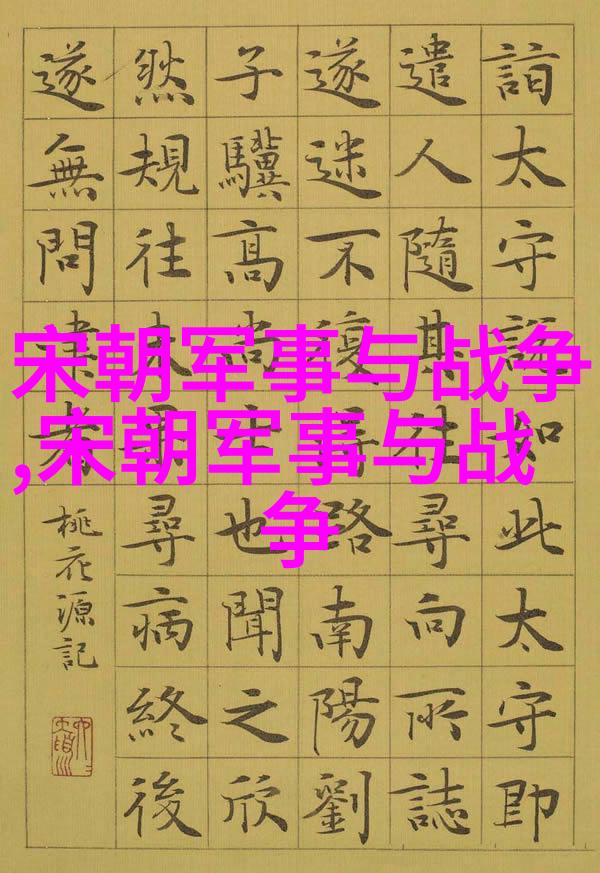 宋朝军事与战争
,宋朝军事与战
争
詣太守說如此太守即
遣人隨其往尋向所誌
遂迷不復得路南陽劉
子驥高尚士也聞之欣
然規往未果尋病終後
遂無問津者
桃花源記